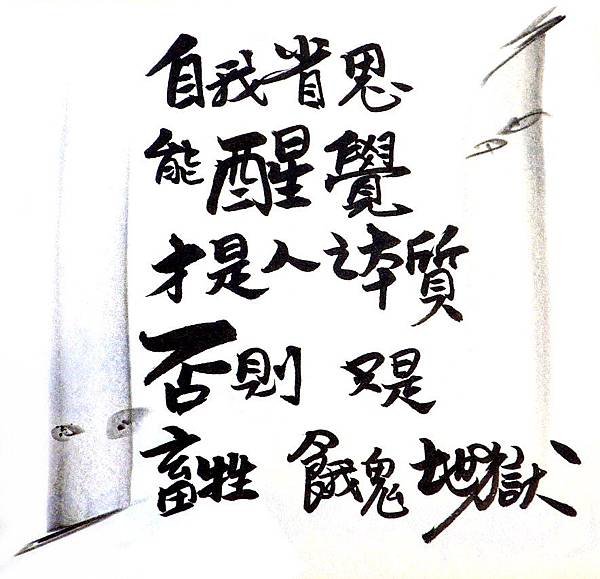 自我省思
能醒覺
才是人之本質
否則 只是
畜牲 餓鬼地獄